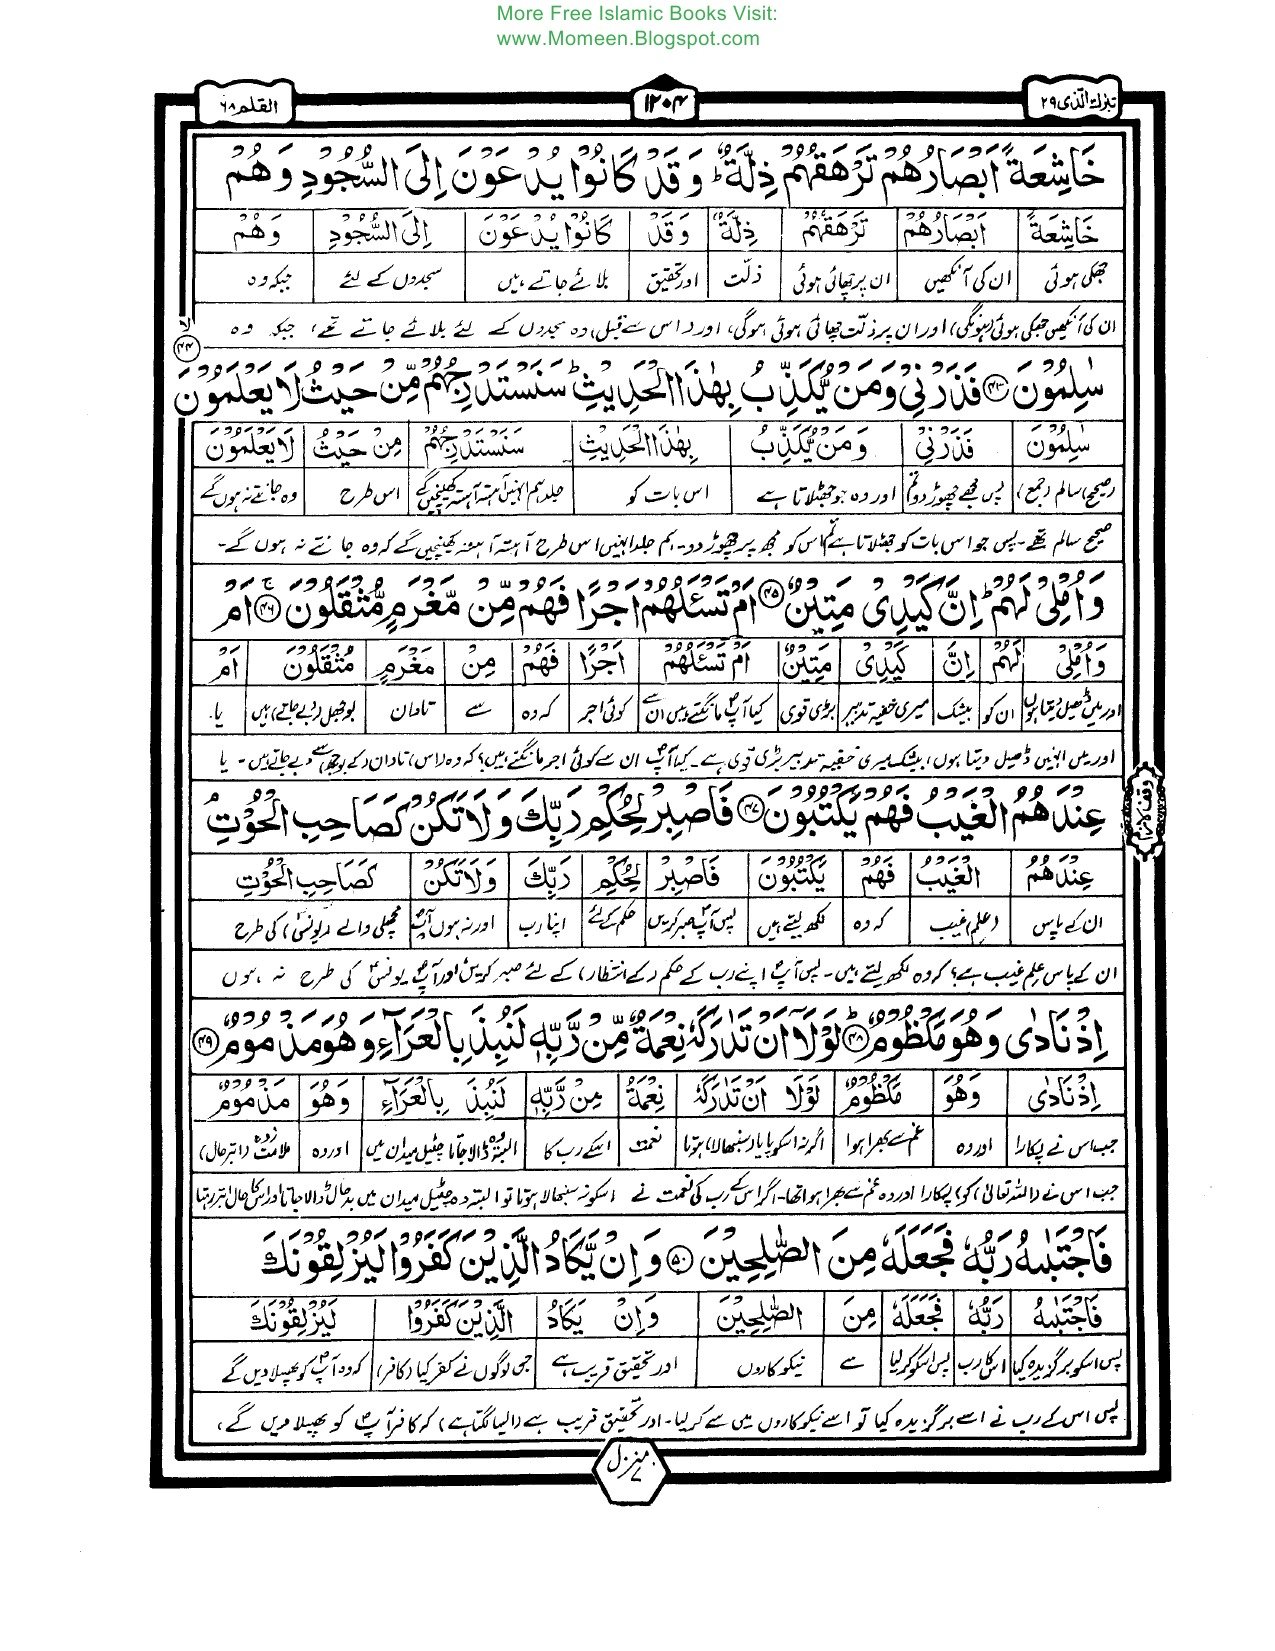 More Free Islamic Books Visit:
www.Momeen.Blogspot.com
تبٰرك الذی ۲۹
۱۲۰۴
القلم ۶۸
خَاشِعَةً اَبْصَارُهُمْ تَرْهَقُهُمْ ذِلَّةٌ ؕ وَ قَدْ كَانُوْا يُدْعَوْنَ اِلَى السُّجُوْدِ وَ هُمْ
خَاشِعَةً اَبْصَارُهُمْ تَرْهَقُهُمْ ذِلَّةٌ وَ قَدْ كَانُوْا يُدْعَوْنَ اِلَى السُّجُوْدِ وَ هُمْ
جھکی ہوئی ان کی آنکھیں ان پر چھائی ہوئی ذلت اور تحقیق بلائے جاتے ہیں سجدوں کے لئے جبکہ وہ
ان کی آنکھیں جھکی ہوئی (ہونگی) اور ان پر ذلت چھائی ہوئی ہوگی، اور (اس سے قبل) وہ سجدوں کے لئے بلائے جاتے تھے، جبکہ وہ
سٰلِمُوْنَ ﴿۴۳﴾ فَذَرْنِيْ وَ مَنْ يُّكَذِّبُ بِهٰذَا الْحَدِيْثِ ؕ سَنَسْتَدْرِجُهُمْ مِّنْ حَيْثُ لَا يَعْلَمُوْنَ ﴿۴۴﴾ لا
سٰلِمُوْنَ فَذَرْنِيْ وَ مَنْ يُّكَذِّبُ بِهٰذَا الْحَدِيْثِ سَنَسْتَدْرِجُهُمْ مِنْ حَيْثُ لَا يَعْلَمُوْنَ
(صحیح) سالم (جمع) پس مجھے چھوڑ دو تم اور وہ جو جھٹلاتا ہے اس بات کو جلد ہم انہیں آہستہ آہستہ کھینچیں گے اس طرح وہ جانتے نہ ہوں گے
صحیح سالم تھے۔ پس جو اس بات کو جھٹلاتا ہے تم اس کو مجھ پر چھوڑ دو۔ ہم جلد انہیں اس طرح آہستہ آہستہ کھینچیں گے کہ وہ جانتے نہ ہوں گے۔
وَ اُمْلِيْ لَهُمْ ؕ اِنَّ كَيْدِيْ مَتِيْنٌ ﴿۴۵﴾ اَمْ تَسْـَٔلُهُمْ اَجْرًا فَهُمْ مِّنْ مَّغْرَمٍ مُّثْقَلُوْنَ ﴿۴۶﴾ ۚ اَمْ
وَ اُمْلِيْ لَهُمْ اِنَّ كَيْدِيْ مَتِيْنٌ اَمْ تَسْـَٔلُهُمْ اَجْرًا فَهُمْ مِنْ مَغْرَمٍ مُثْقَلُوْنَ اَمْ
اور میں ڈھیل دیتا ہوں ان کو بیشک میری خفیہ تدبیر بڑی قوی کیا آپ مانگتے ہیں ان سے کوئی اجر کہ وہ سے تاوان بوجھل (دبے جاتے) ہیں یا
اور میں انہیں ڈھیل دیتا ہوں، بیشک میری خفیہ تدبیر بڑی قوی ہے۔ کیا آپ ان سے کوئی اجر مانگتے ہیں؟ کہ وہ (اس) تاوان (کے بوجھ) سے دبے جاتے ہیں۔ یا
عِنْدَهُمُ الْغَيْبُ فَهُمْ يَكْتُبُوْنَ ﴿۴۷﴾ فَاصْبِرْ لِحُكْمِ رَبِّكَ وَ لَا تَكُنْ كَصَاحِبِ الْحُوْتِ ۘ
وقف لازم
عِنْدَهُمْ الْغَيْبُ فَهُمْ يَكْتُبُوْنَ فَاصْبِرْ لِحُكْمِ رَبِّكَ وَ لَا تَكُنْ كَصَاحِبِ الْحُوْتِ
ان کے پاس (علم) غیب کہ وہ لکھ لیتے ہیں پس آپ صبر کریں حکم کے لئے اپنا رب اور نہ ہوں آپ مچھلی والے (یونس) کی طرح
ان کے پاس علم غیب ہے؟ کہ وہ لکھ لیتے ہیں۔ پس آپ اپنے رب کے حکم (کے انتظار) کے لئے صبر کریں اور آپ یونس کی طرح نہ ہوں
اِذْ نَادٰى وَ هُوَ مَكْظُوْمٌ ﴿۴۸﴾ ؕ لَوْ لَا اَنْ تَدٰرَكَهٗ نِعْمَةٌ مِّنْ رَّبِّهٖ لَنُبِذَ بِالْعَرَآءِ وَ هُوَ مَذْمُوْمٌ ﴿۴۹﴾
اِذْ نَادٰى وَ هُوَ مَكْظُوْمٌ لَوْ لَا اَنْ تَدٰرَكَهٗ نِعْمَةٌ مِنْ رَّبِّهٖ لَنُبِذَ بِالْعَرَآءِ وَ هُوَ مَذْمُوْمٌ
جب اس نے پکارا اور وہ غم سے بھرا ہوا اگر نہ اسکو پایا (سنبھالا) ہوتا نعمت اسکے رب کا البتہ وہ ڈالا جاتا چٹیل میدان میں اور وہ ملامت زدہ (ابتر حال)
جب اس نے (اللہ تعالیٰ) کو پکارا اور وہ غم سے بھرا ہوا تھا۔ اگر اس کے رب کی نعمت نے اسکو نہ سنبھالا ہوتا تو البتہ وہ چٹیل میدان میں بدحال ڈالا جاتا اور اس کا حال ابتر رہتا
فَاجْتَبٰىهُ رَبُّهٗ فَجَعَلَهٗ مِنَ الصّٰلِحِيْنَ ﴿۵۰﴾ وَ اِنْ يَّكَادُ الَّذِيْنَ كَفَرُوْا لَيُزْلِقُوْنَكَ
فَاجْتَبٰىهُ رَبُّهٗ فَجَعَلَهٗ مِنَ الصّٰلِحِيْنَ وَ اِنْ يَكَادُ الَّذِيْنَ كَفَرُوْا لَيُزْلِقُوْنَكَ
پس اسکو برگزیدہ کیا اس کا رب پس اسکو کر لیا سے نیکوکاروں اور تحقیق قریب ہے جن لوگوں نے کفر کیا (کافر) کہ وہ آپ کو پھسلا دیں گے
پس اس کے رب نے اسے برگزیدہ کیا تو اسے نیکوکاروں میں سے کر لیا۔ اور تحقیق قریب ہے (ایسا لگتا ہے) کہ کافر آپ کو پھسلا دیں گے،
منزل ۷